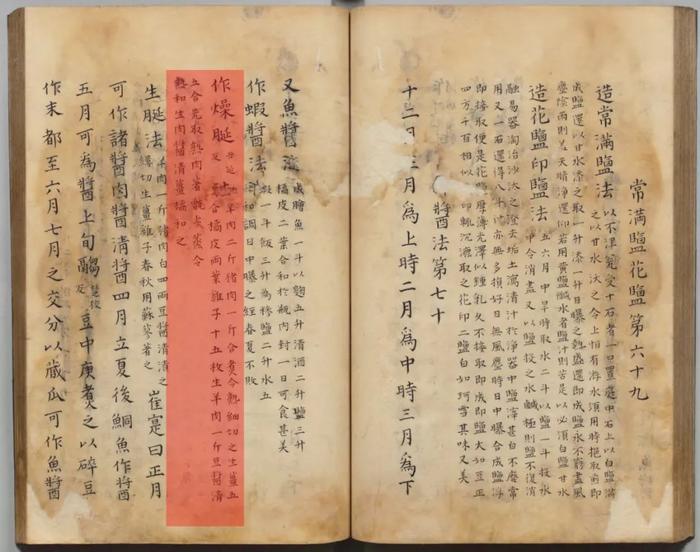 常滿鹽花鹽第六十九
造常滿鹽法
以不津甕受十石者一口置庭中石上以白鹽滿
之以甘水沃之令上恒有游水須用時挹取煎即
成鹽還以甘水添之取一升添一升日曝之熱盛還即成鹽永不窮盡風
塵陰雨則蓋天晴淨還仰若用黃鹽鹹水者鹽汁則苦是以必須白鹽甘水
造花鹽印鹽法
五六月中旱時取水二斗以鹽一斗投水
中令消盡又以鹽投之水鹹極則鹽不復消
融易器淘治沙汰之澄去垢土瀉清汁於淨器中鹽滓甚白不廢常
用又一石還得八斗汁亦無多損好日無風塵時日中曝令成鹽浮
即接取便是花鹽厚薄光澤似鍾乳久不接取即成印鹽大如豆正
四方千百相似印輒沉漉取之花印二鹽白如珂雪其味又美
醬法第七十
十二月三月為上時二月為中時三月為下
又魚醬法
成膾魚一斗以麴五升清酒二升鹽三升
橘皮二葉合和於瓶內封一日可食甚美
作蝦醬法
蝦一斗飯三升為糝鹽二升水五
升和調日中曝之經春夏不敗
作燥脡
羊肉二斤猪肉一斤合煮令熟細切之生薑五
合橘皮兩葉雞子十五枚生羊肉一斤豆醬清
五合先取熟肉著甑上蒸令
熱和生肉醬清薑橘和之
生脡法
羊肉一斤猪肉白四兩豆醬清漬之
縷切生薑雞子春秋用蘇蓼著之
崔寔曰正月
可作諸醬肉醬清醬四月立夏後鮦魚作醬
五月可為醬上旬豆中庚煮之以碎豆
作末都至六月七月之交分以藏瓜可作魚醬